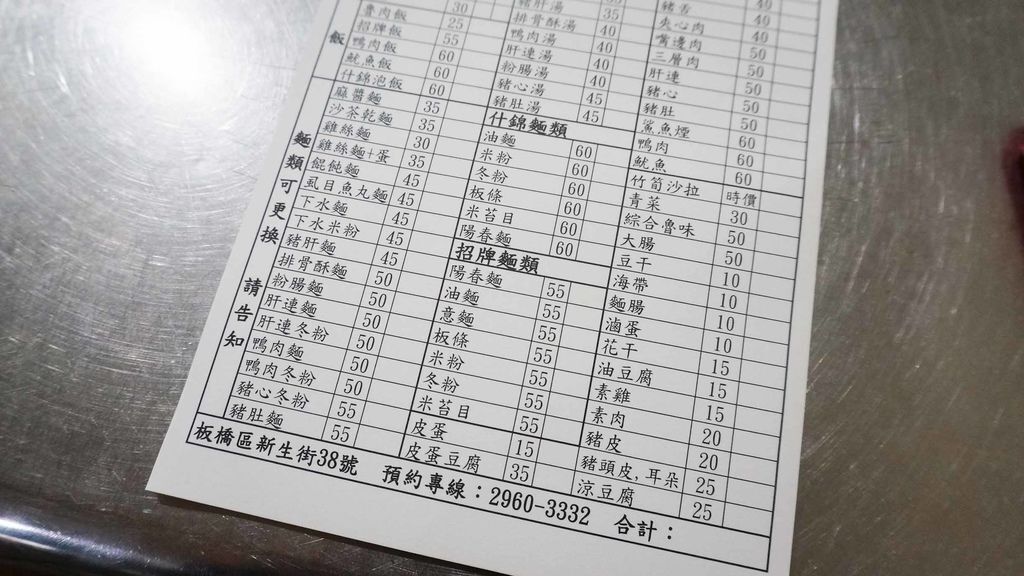 魯肉飯 25
招牌飯 55
鴨肉飯 60
魷魚飯 60
什錦泡飯 60
飯
麻醬麵 35
沙茶乾麵 35
雞絲麵 30
雞絲麵+蛋 35
餛飩麵 45
虱目魚丸麵 45
下水麵 45
下水米粉 45
豬肝麵 45
排骨酥麵 50
粉腸麵 50
肝連麵 50
肝連冬粉 50
鴨肉麵 50
鴨肉冬粉 50
豬心冬粉 55
豬肚麵 55
麵類可更換 請告知
豬肝湯 35
排骨酥湯 40
鴨肉湯 40
肝連湯 40
粉腸湯 40
豬心湯 45
豬肚湯 45
什錦麵類
油麵 60
米粉 60
冬粉 60
板條 60
米苔目 60
陽春麵 60
招牌麵類
陽春麵 55
油麵 55
意麵 55
板條 55
米粉 55
冬粉 55
米苔目 55
皮蛋 15
皮蛋豆腐 35
豬舌 40
夾心肉 40
嘴邊肉 50
三層肉 50
肝連 50
豬心 50
豬肚 50
鯊魚煙 60
鴨肉 60
魷魚 60
竹筍沙拉 時價
青菜 30
綜合魯味 50
大腸 50
豆干 10
海帶 10
麵腸 10
滷蛋
花干 15
油豆腐 15
素雞 15
素肉 20
豬皮 20
豬頭皮,耳朵 25
涼豆腐 25
板橋區新生街38號 預約專線：2960-3332 合計：